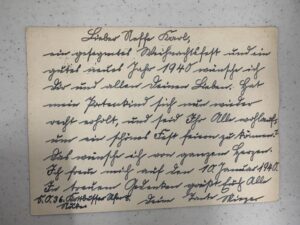 Lieber Neffe Karl,
ein gesegnetes Weihnachtsfest und ein
gutes neues Jahr 1940 wünsche ich
Dir und allen Deinen Lieben. Hat
mein Patenkind sich nun wieder
recht erholt, und seid Ihr Alle wohlauf,
um ein schönes Fest feiern zu können?
Das wünsche ich von ganzem Herzen.
Ich freu mich auf den 10. Januar 1940.
In treuem Gedenken grüßt Euch Alle
Dein Tante